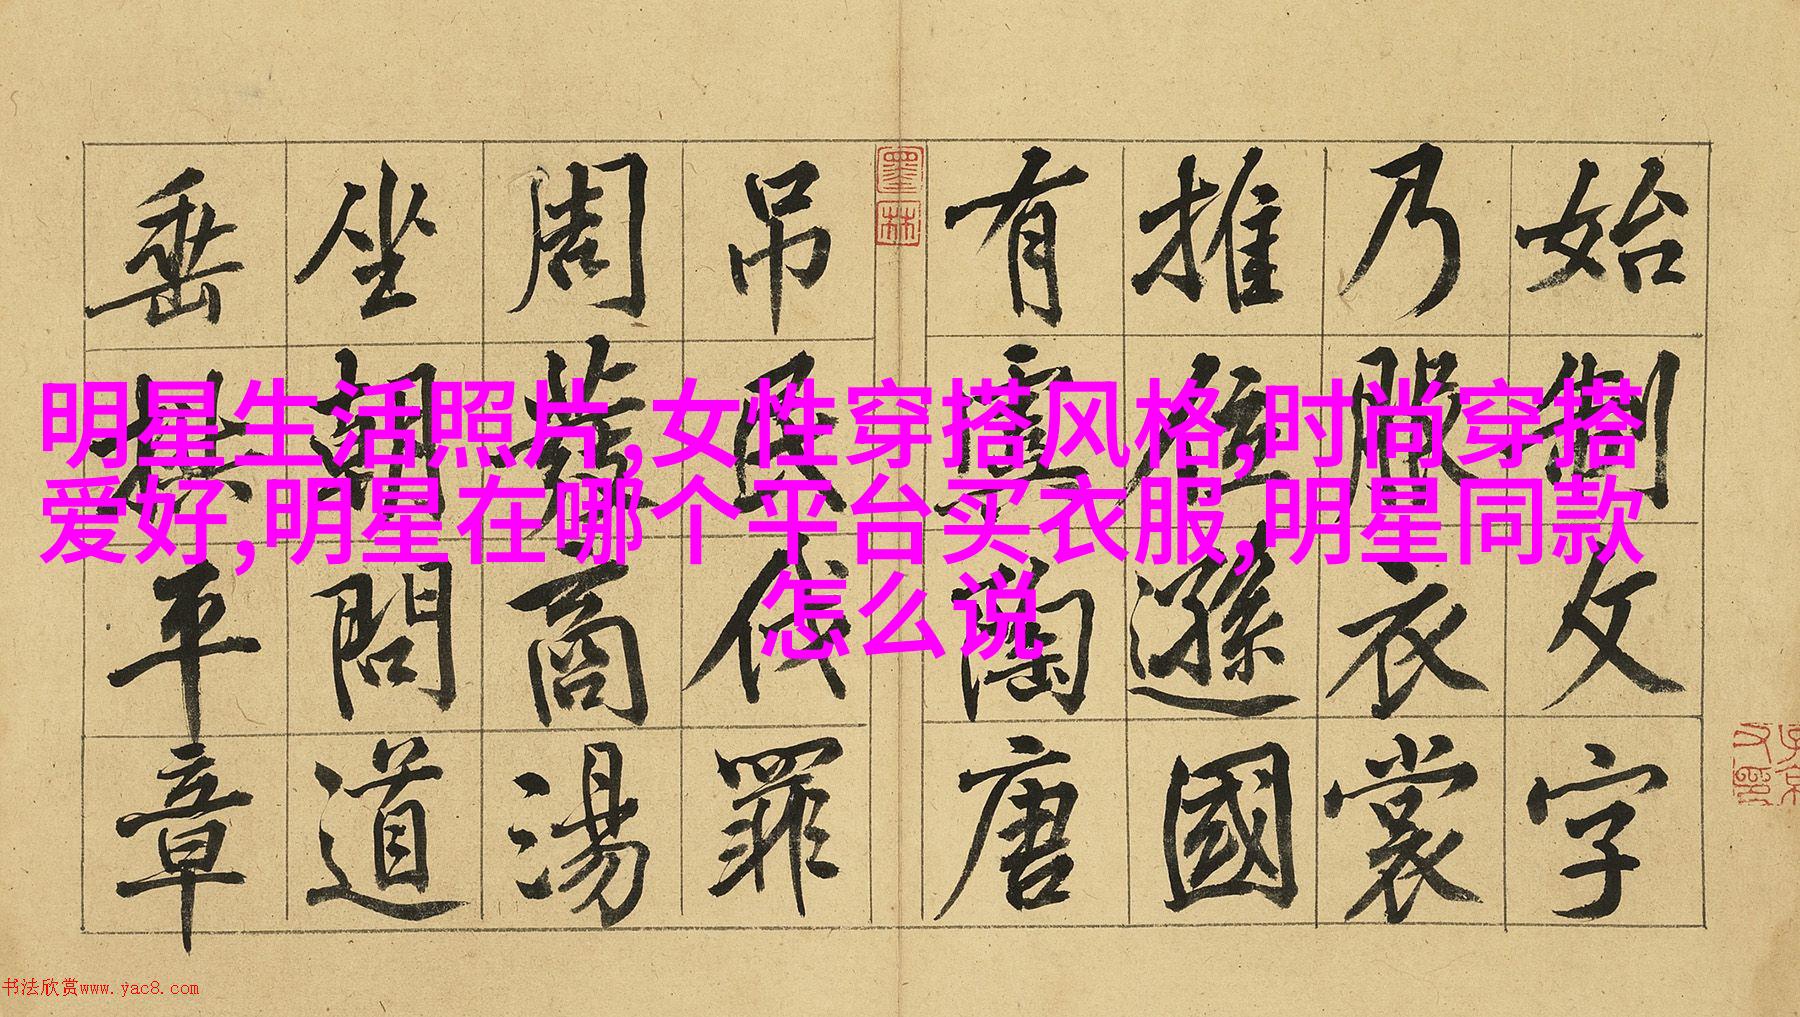 明星生活照片,女性穿搭风格,时尚穿搭
爱好,明星在哪个平台买衣服,明星同款
怎么说
始制文字
乃服衣裳
推位遜國
有虞陶唐
吊民伐罪
周發商湯
坐朝問道
垂拱平章
墨林
书法欣赏www.yac8.com